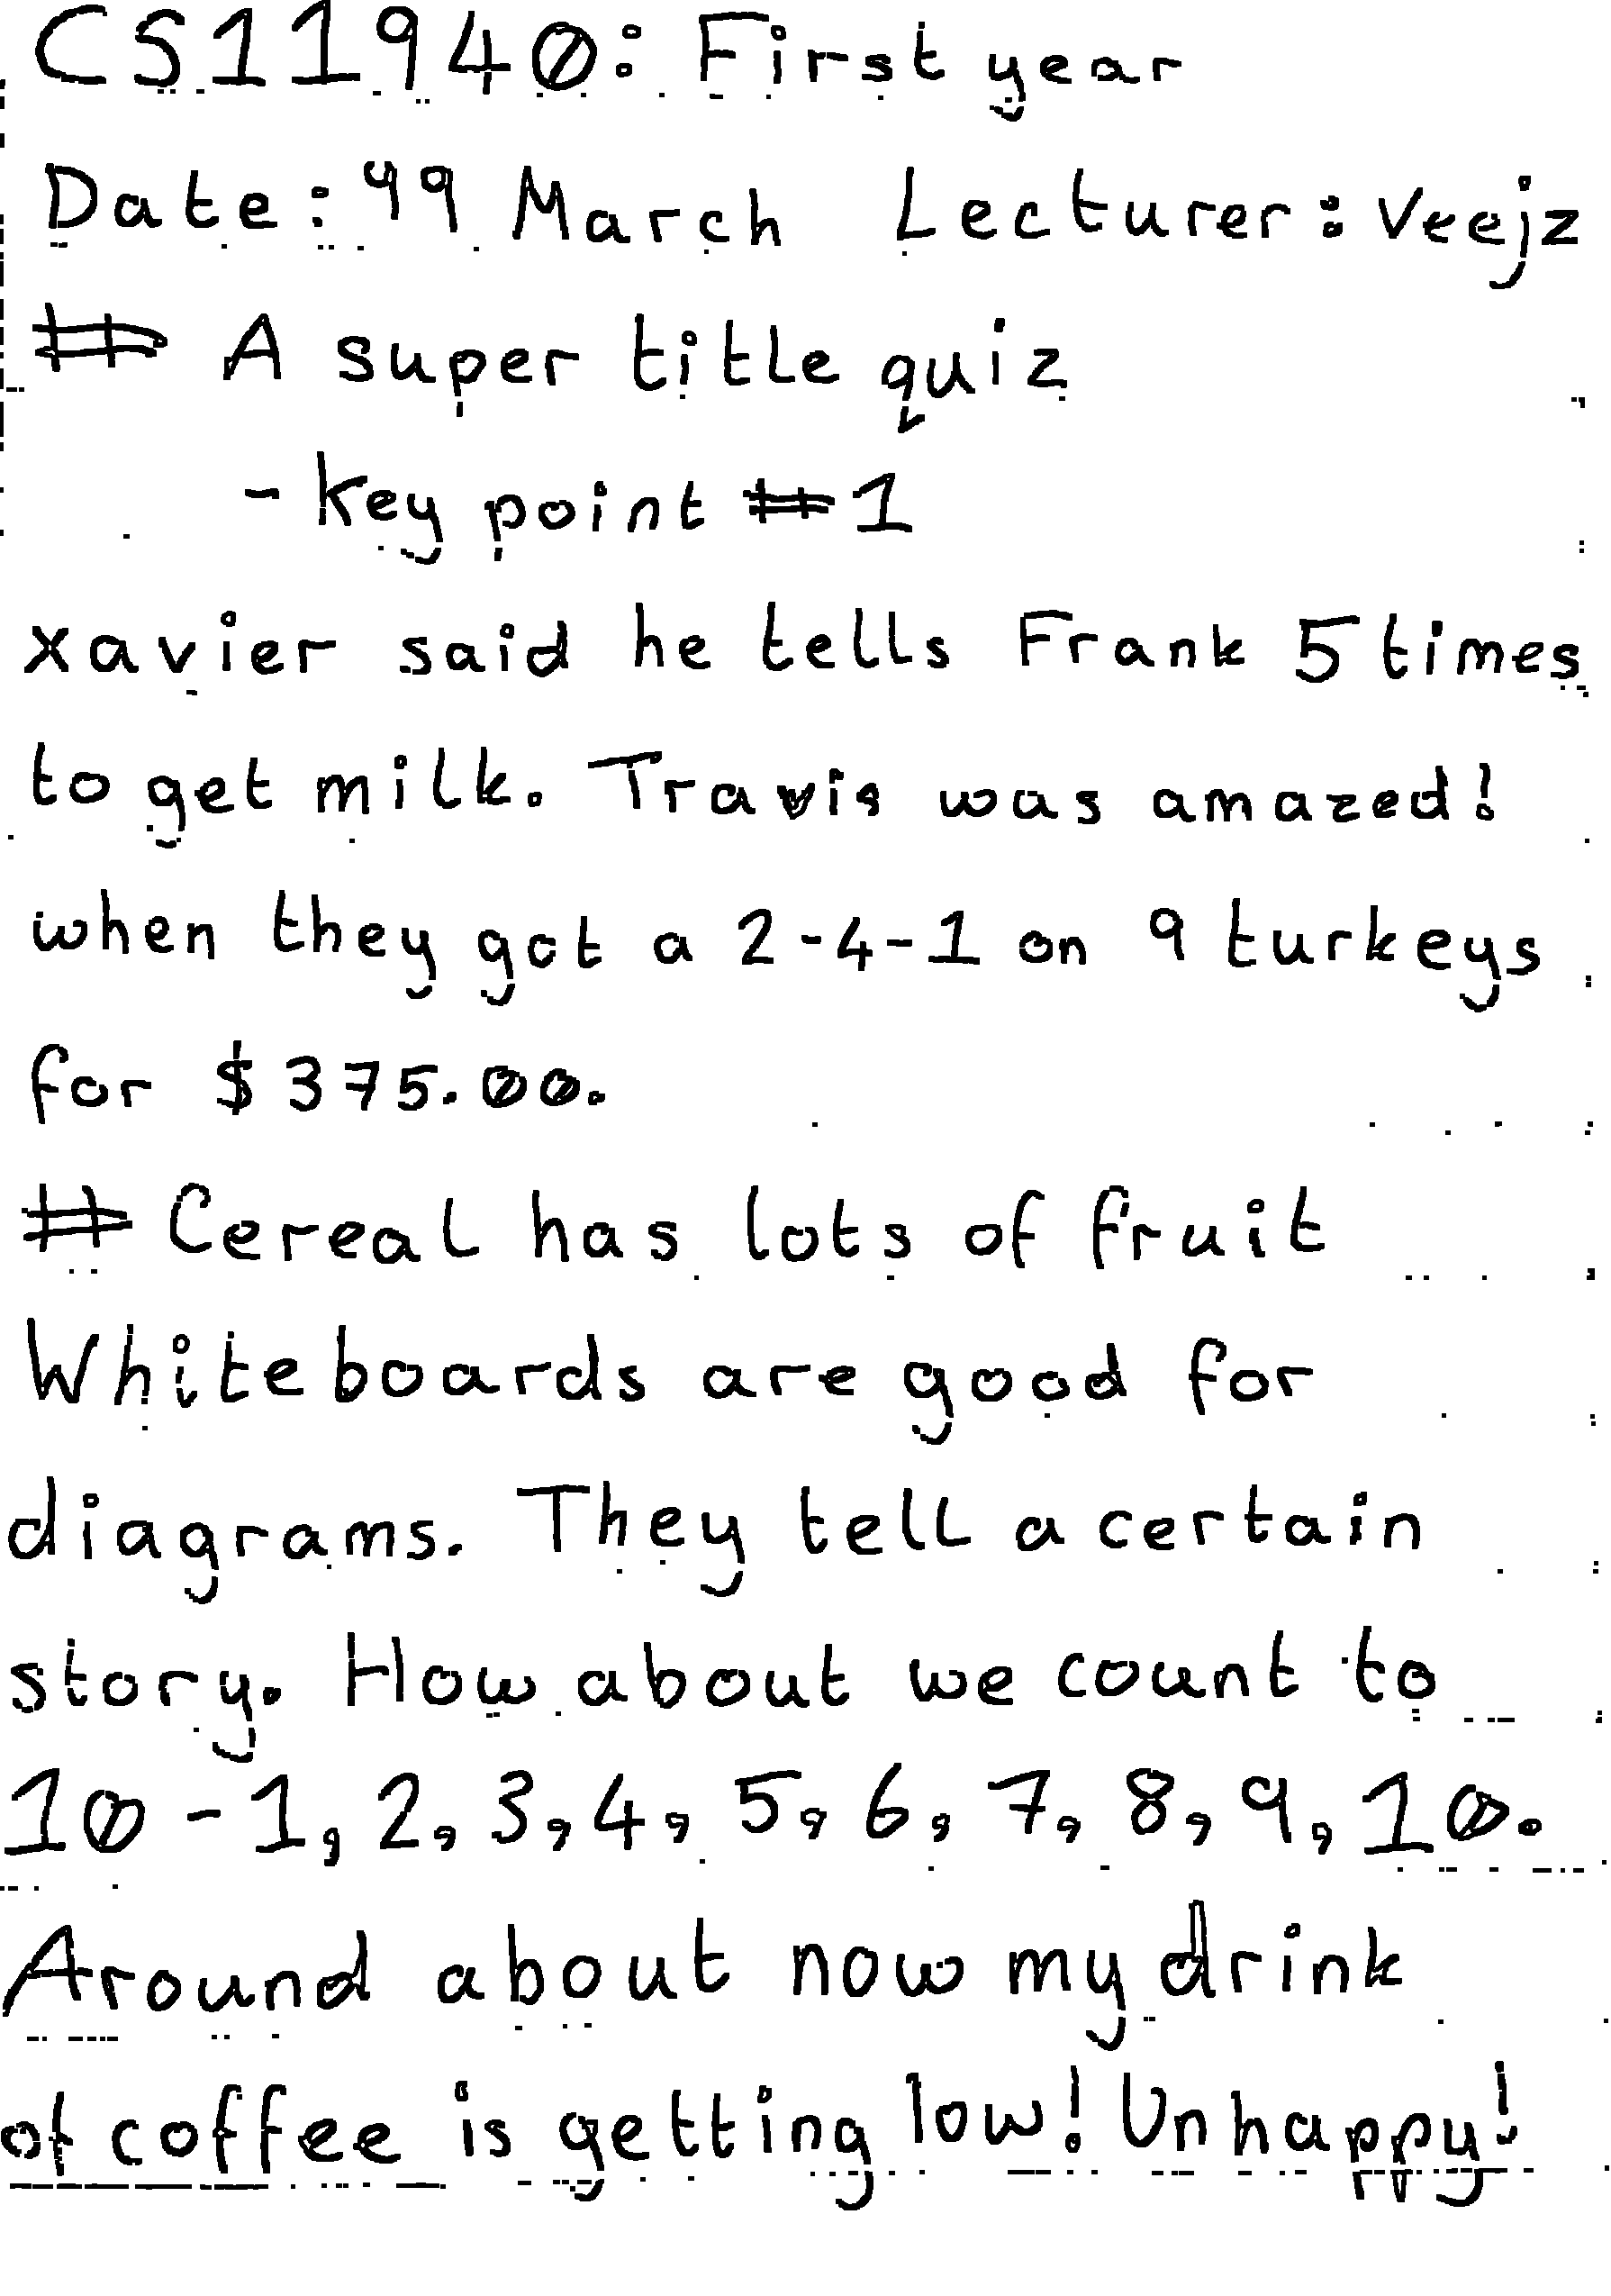 CS11940: First year
Date: 99 March Lecturer: Veejz
# A super title quiz
- Key point #1
xavier said he tells Frank 5 times
to get milk. Travis was amazed!
when they got a 2-4-1 on 9 turkeys
for $375.00.
# Cereal has lots of fruit
Whiteboards are good for
diagrams. They tell a certain
story. How about we count to
10 - 1, 2, 3, 4, 5, 6, 7, 8, 9, 10.
Around about now my drink
of coffee is getting low! Unhappy!